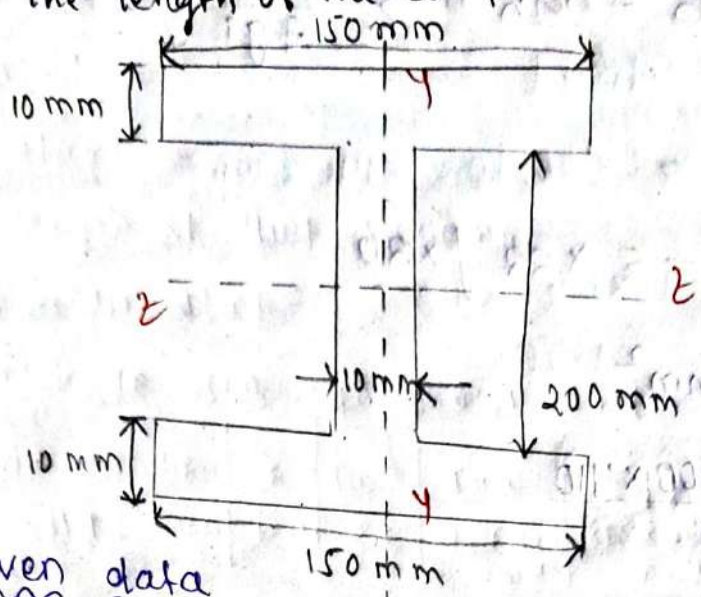 the length of
150 mm
10 mm
y
z z
10 mm
200 mm
10 mm
y
150 mm
ven data